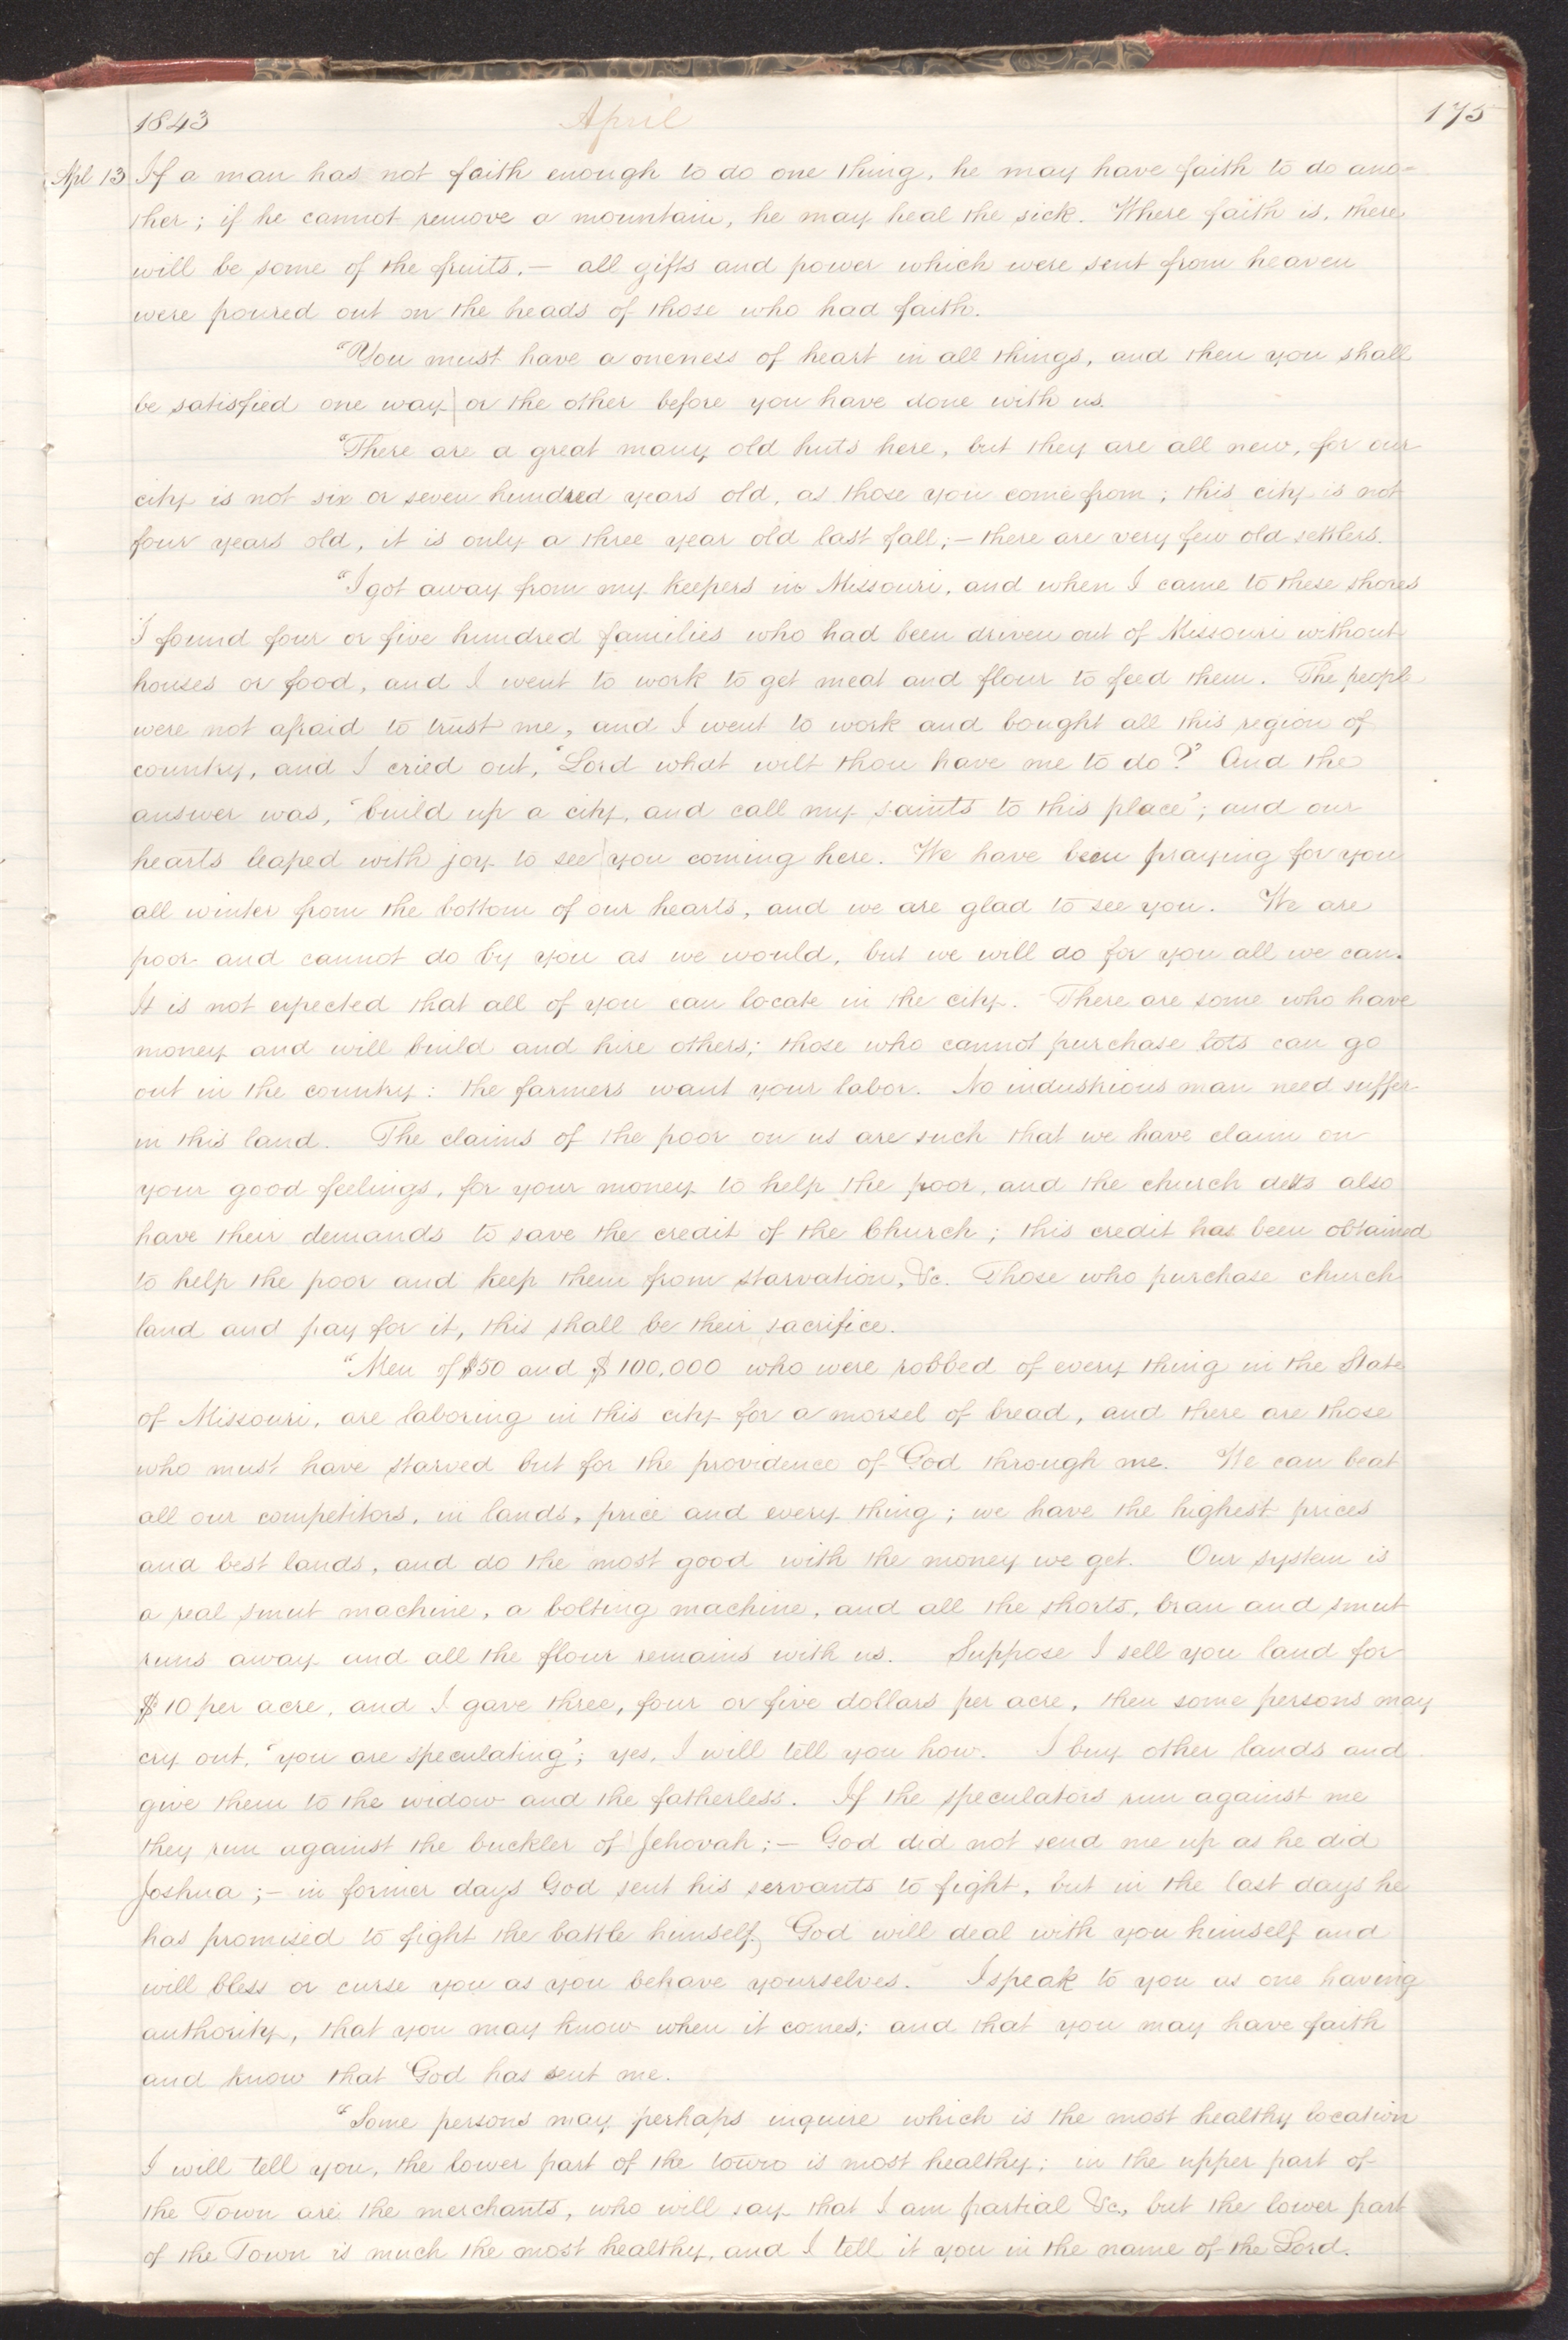 1843 April 175
Apl 13 If a man has not faith enough to do one thing, he may have faith to do ano=
ther; if he cannot remove a mountain, he may heal the sick. Where faith is, there
will be some of the fruits.— all gifts and power which were sent from heaven
were poured out on the heads of those who had faith.
"You must have a oneness of heart in all things, and then you shall
be satisfied one way or the other before you have done with us.
"There are a great many old huts here, but they are all new, for our
city is not six or seven hundred years old, as those you come from; this city is not
four years old, it is only a three year old last fall;— there are very few old settlers.
"I got away from my keepers in Missouri, and when I came to these shores
I found four or five hundred families who had been driven out of Missouri without
houses or food, and I went to work to get meat and flour to feed them. The people
were not afraid to trust me, and I went to work and bought all this region of
country, and I cried out, 'Lord what wilt thou have me to do?' And the
answer was, 'build up a city, and call my saints to this place'; and our
hearts leaped with joy to see you coming here. We have been praying for you
all winter from the bottom of our hearts, and we are glad to see you. We are
poor and cannot do by you as we would, but we will do for you all we can.
It is not expected that all of you can locate in the city. There are some who have
money and will build and hire others; those who cannot purchase lots can go
out in the country: the farmers want your labor. No industrious man need suffer
in this land. The claims of the poor on us are such that we have claim on
your good feelings, for your money to help the poor, and the church debts also
have their demands to save the credit of the Church; this credit has been obtained
to help the poor and keep them from starvation, &c. Those who purchase church
land and pay for it, this shall be their sacrifice.
"Men of $50 and $100,000 who were robbed of every thing in the State
of Missouri, are laboring in this city for a morsel of bread, and there are those
who must have starved but for the providence of God through me. We can beat
all our competitors, in lands, price and every thing; we have the highest prices
and best lands, and do the most good with the money we get. Our system is
a real smut machine, a bolting machine, and all the shorts, bran and smut
runs away and all the flour remains with us. Suppose I sell you land for
$10 per acre, and I gave three, four or five dollars per acre, then some persons may
cry out, 'you are speculating'; yes, I will tell you how. I buy other lands and
give them to the widow and the fatherless. If the speculators run against me
they run against the buckler of Jehovah;— God did not send me up as he did
Joshua;— in former days God sent his servants to fight, but in the last days he
has promised to fight the battle himself. God will deal with you himself and
will bless or curse you as you behave yourselves. I speak to you as one having
authority, that you may know when it comes; and that you may have faith
and know that God has sent me.
"Some persons may perhaps inquire which is the most healthy location
I will tell you, the lower part of the town is most healthy; in the upper part of
the Town are the merchants, who will say that I am partial &c., but the lower part
of the Town is much the most healthy, and I tell it you in the name of the Lord.